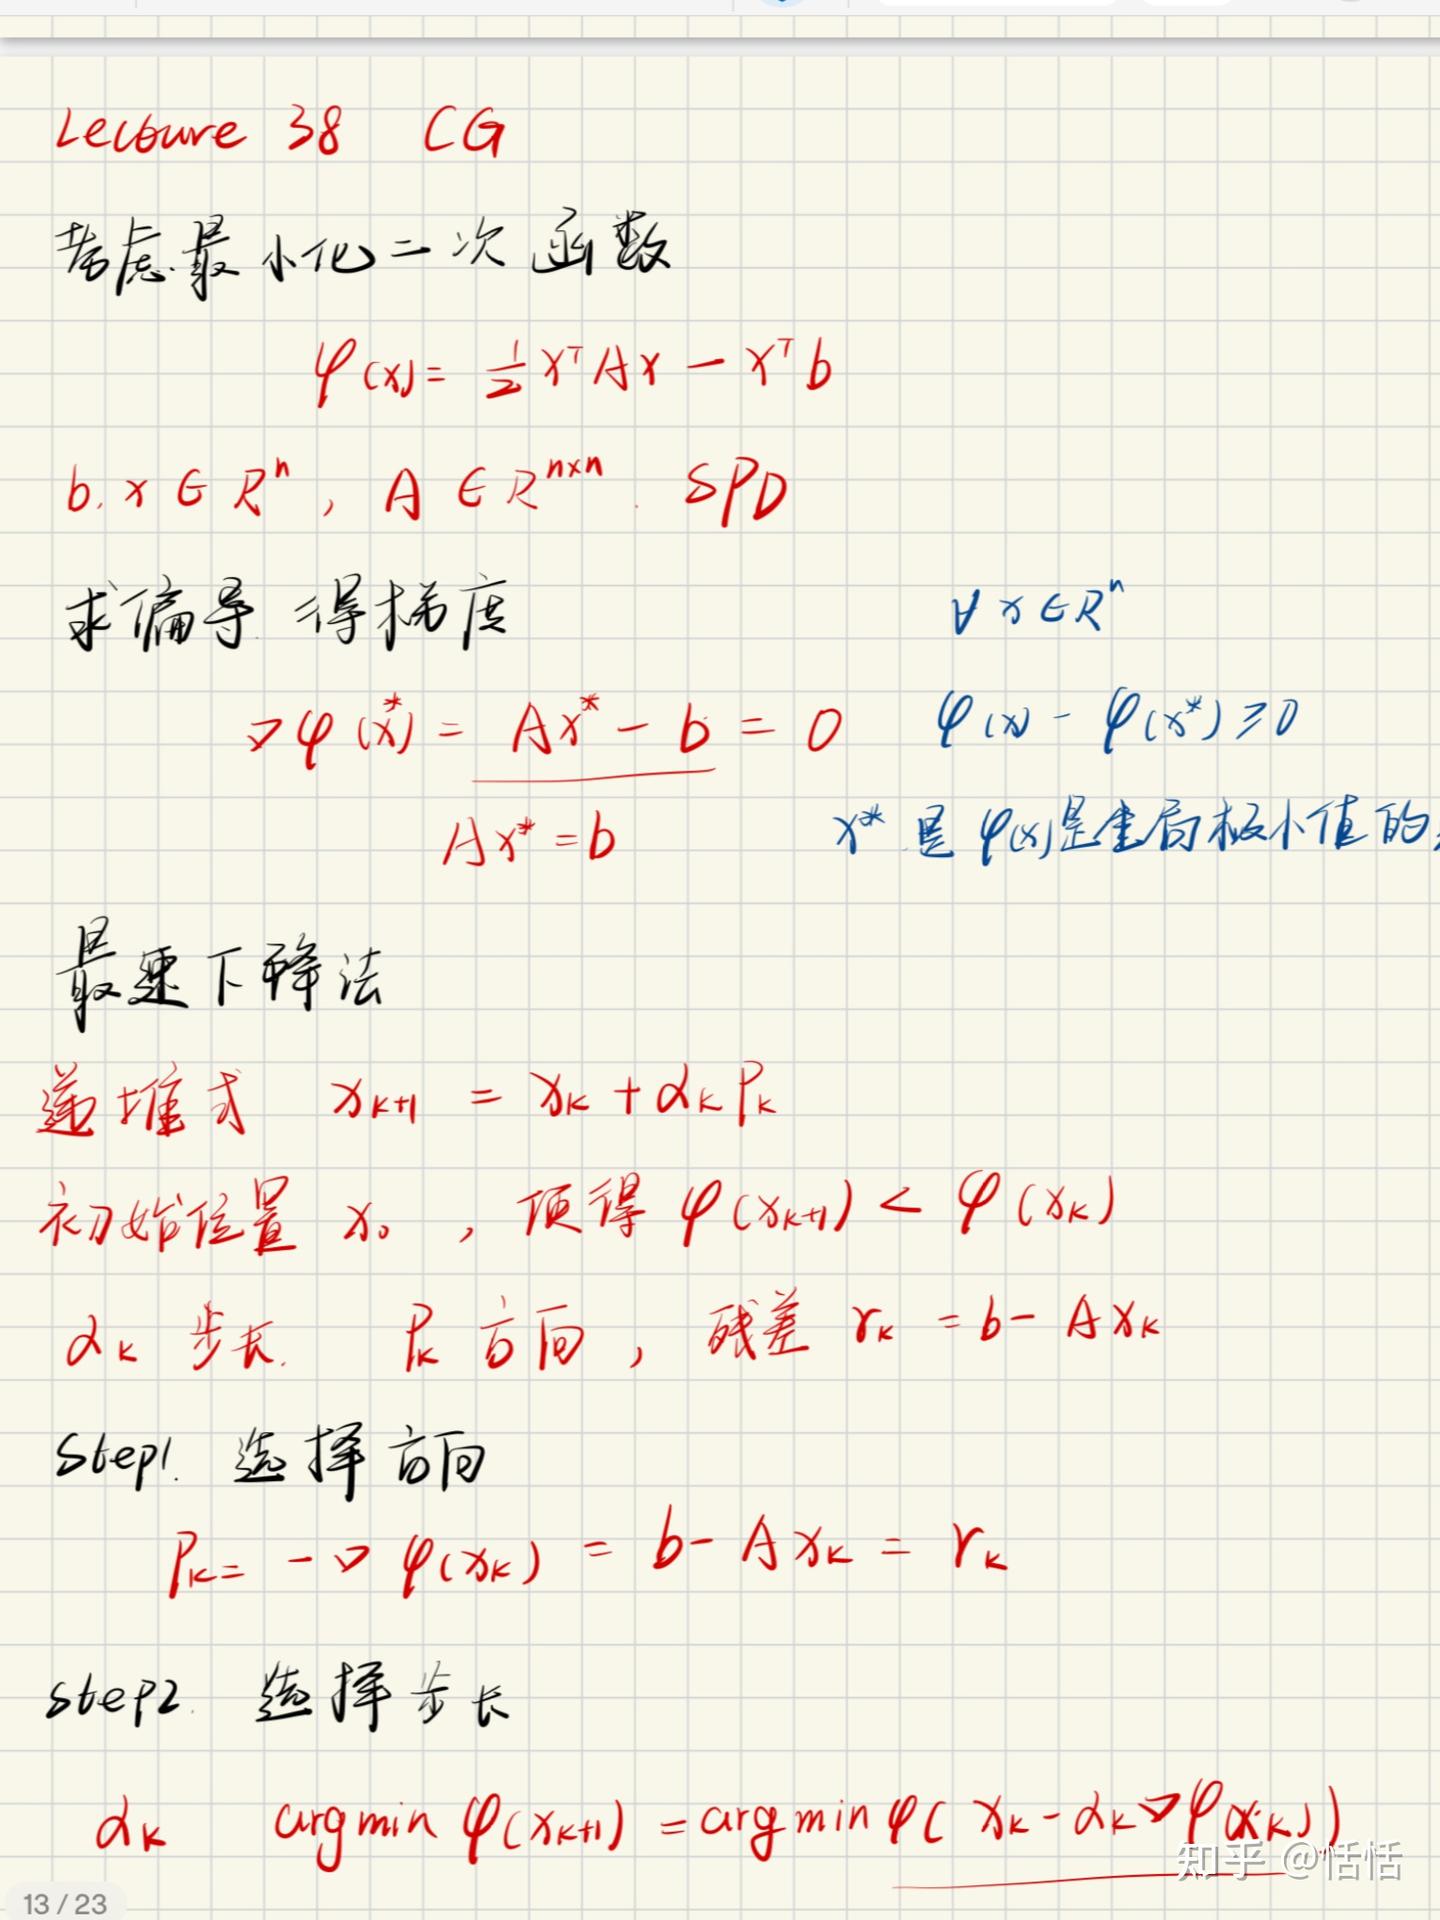 Lecture 38 CG
考虑最小化二次函数
φ(x) = 1/2 xᵀAx − xᵀb
b, x ∈ Rⁿ, A ∈ Rⁿˣⁿ. SPD
求偏导 得梯度
∀ x ∈ Rⁿ
∇φ(x*) = Ax* − b = 0
φ(x) − φ(x*) ≥ 0
Ax* = b
x* 是 φ(x)是全局极小值的
最速下降法
递推式 xₖ₊₁ = xₖ + αₖPₖ
初始位置 x₀, 使得 φ(xₖ₊₁) < φ(xₖ)
αₖ 步长. Pₖ 方向, 残差 rₖ = b − Axₖ
Step1. 选择方向
Pₖ = −∇φ(xₖ) = b − Axₖ = rₖ
Step2. 选择步长
αₖ argmin φ(xₖ₊₁) = argmin φ(xₖ − αₖ∇φ(xₖ))
知乎 @恬恬
13 / 23